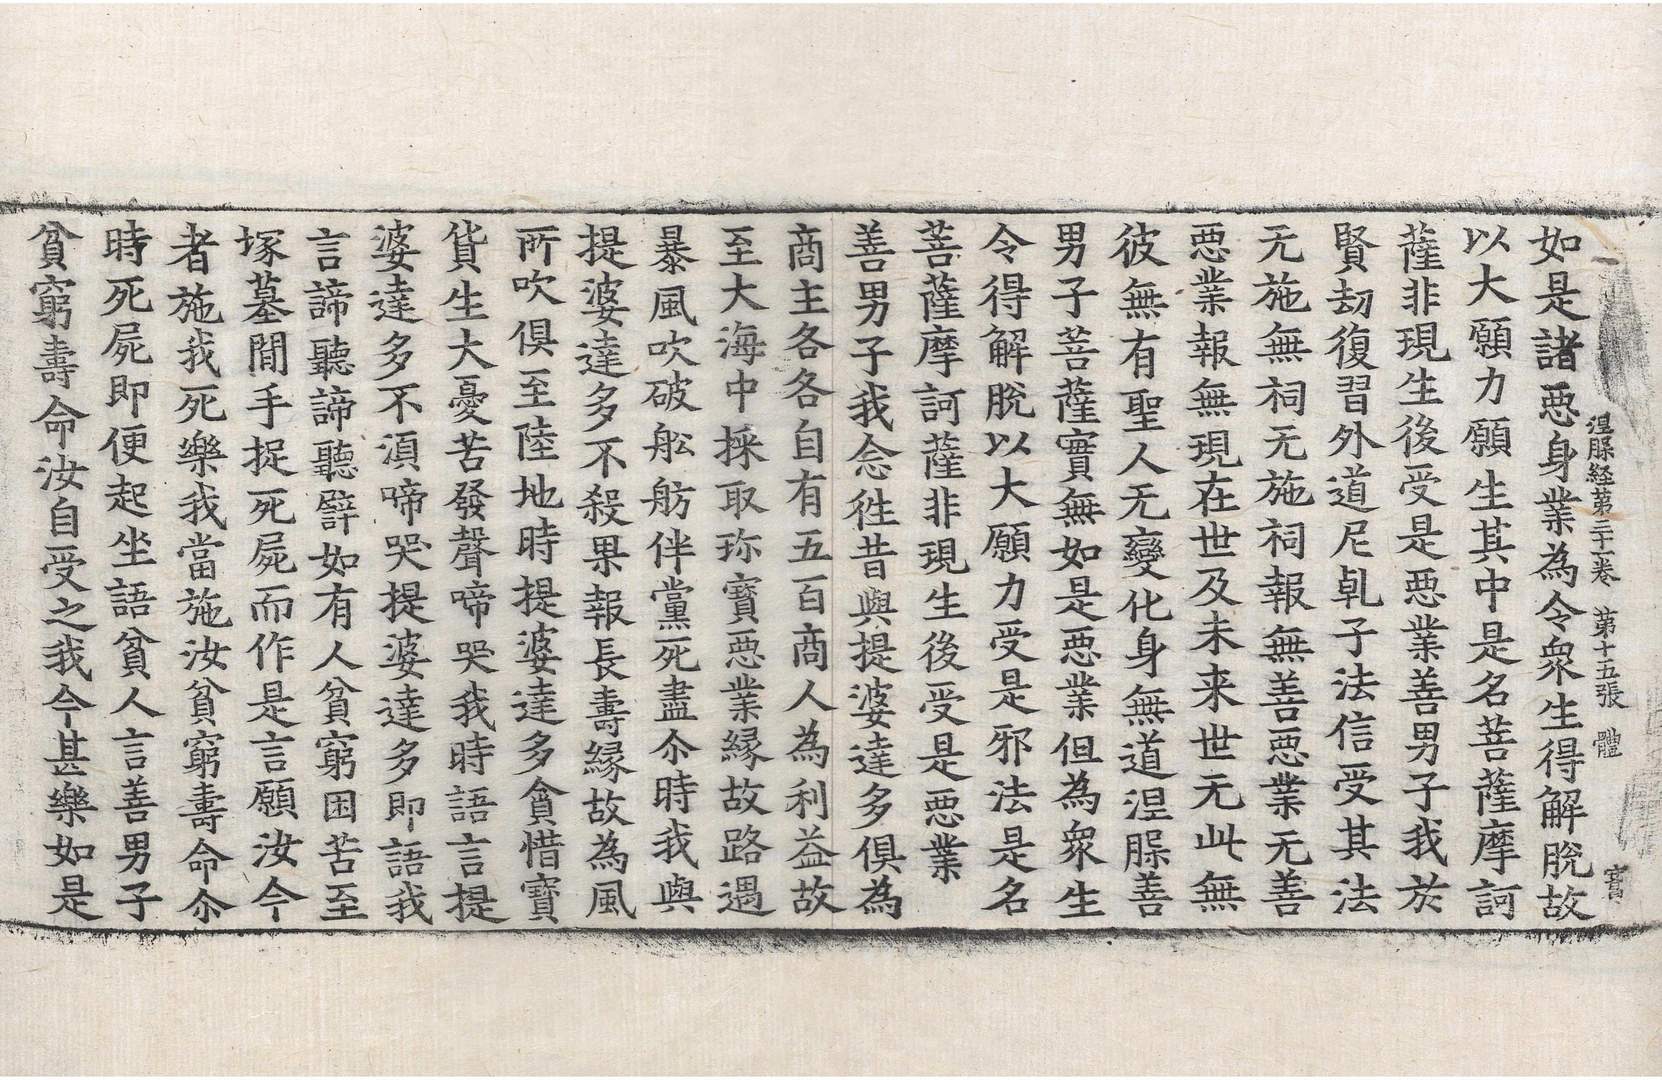 涅脲経第三十二卷 第十五張 體
如是諸惡身業為令衆生得解脫故
以大願力願生其中是名菩薩摩訶
薩非現生後受是惡業善男子我於
賢劫復習外道尼乹子法信受其法
无施無祠无施祠報無善惡業无善
惡業報無現在世及未来世无此無
彼無有聖人无變化身無道涅脲善
男子菩薩實無如是惡業但為衆生
令得解脫以大願力受是邪法是名
菩薩摩訶薩非現生後受是惡業
善男子我念徃昔與提婆達多俱為
商主各各自有五百商人為利益故
至大海中採取珎寶惡業縁故路遇
暴風吹破舩舫伴黨死盡尒時我與
提婆達多不殺果報長壽縁故為風
所吹俱至陸地時提婆達多貪惜寶
貨生大憂苦發聲啼哭我時語言提
婆達多不湏啼哭提婆達多即語我
言諦聽諦聽譬如有人貧窮困苦至
塚墓間手捉死屍而作是言願汝今
者施我死樂我當施汝貧窮壽命尒
時死屍即便起坐語貧人言善男子
貧窮壽命汝自受之我今甚樂如是